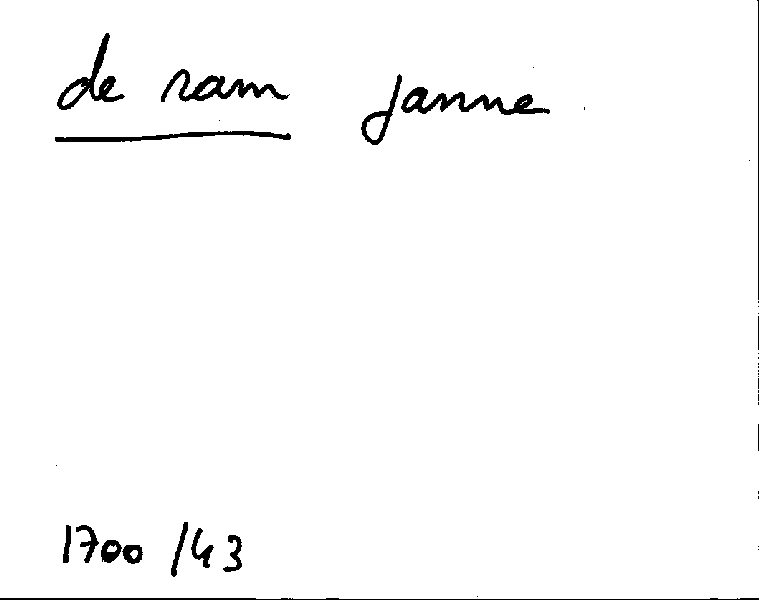 de ram Janne
1700 /43